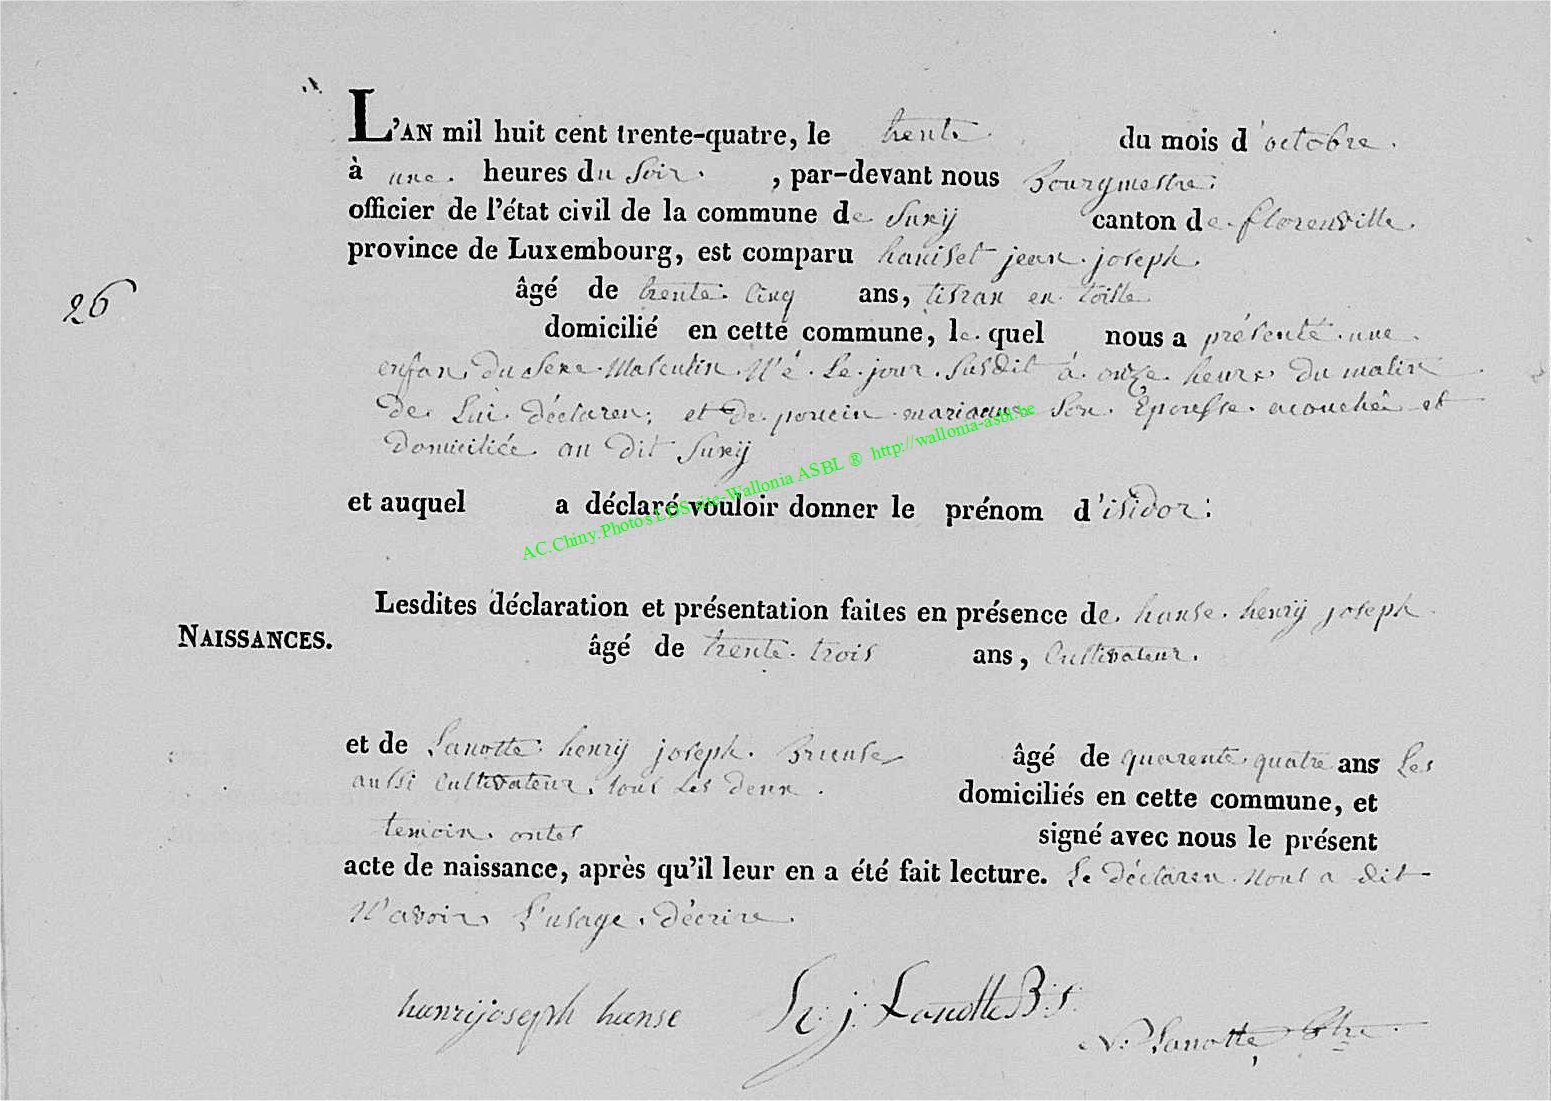 L'AN mil huit cent trente-quatre, le trente du mois d'octobre.
à une. heures du Soir. , par-devant nous Bourgmestre.
officier de l'état civil de la commune de Suxÿ canton de florenville.
province de Luxembourg, est comparu haniset jean joseph.
26
âgé de trente. Cinq ans, tisran en toille
domicilié en cette commune, le quel nous a présenté une
enfan du Sexe Masculin N'é. Le jour. Susdit à onze heure du matin
De. Lui. déclaren; et de poncin marianne Son. Épousse. acouchée et
Domiciliée au dit Suxÿ
et auquel a déclaré vouloir donner le prénom d'isidor:
AC.Chiny.Photos LDS site-Wallonia ASBL ® http://wallonia-asbl.be
Lesdites déclaration et présentation faites en présence de. hanse. henrÿ joseph
NAISSANCES.
âgé de trente. trois ans, Cultivateur.
et de Lanotte henrÿ joseph. âgé de quarente quatre ans Les
aussi Cultivateur. tous Les deux. domiciliés en cette commune, et
temoin. ontes signé avec nous le présent
acte de naissance, après qu'il leur en a été fait lecture. Le déclaren. Nous a dit
N'avoir L'usage. décrire.
henrijoseph hanse h: j: Lanotte B:s:
N: Lanotte, btre